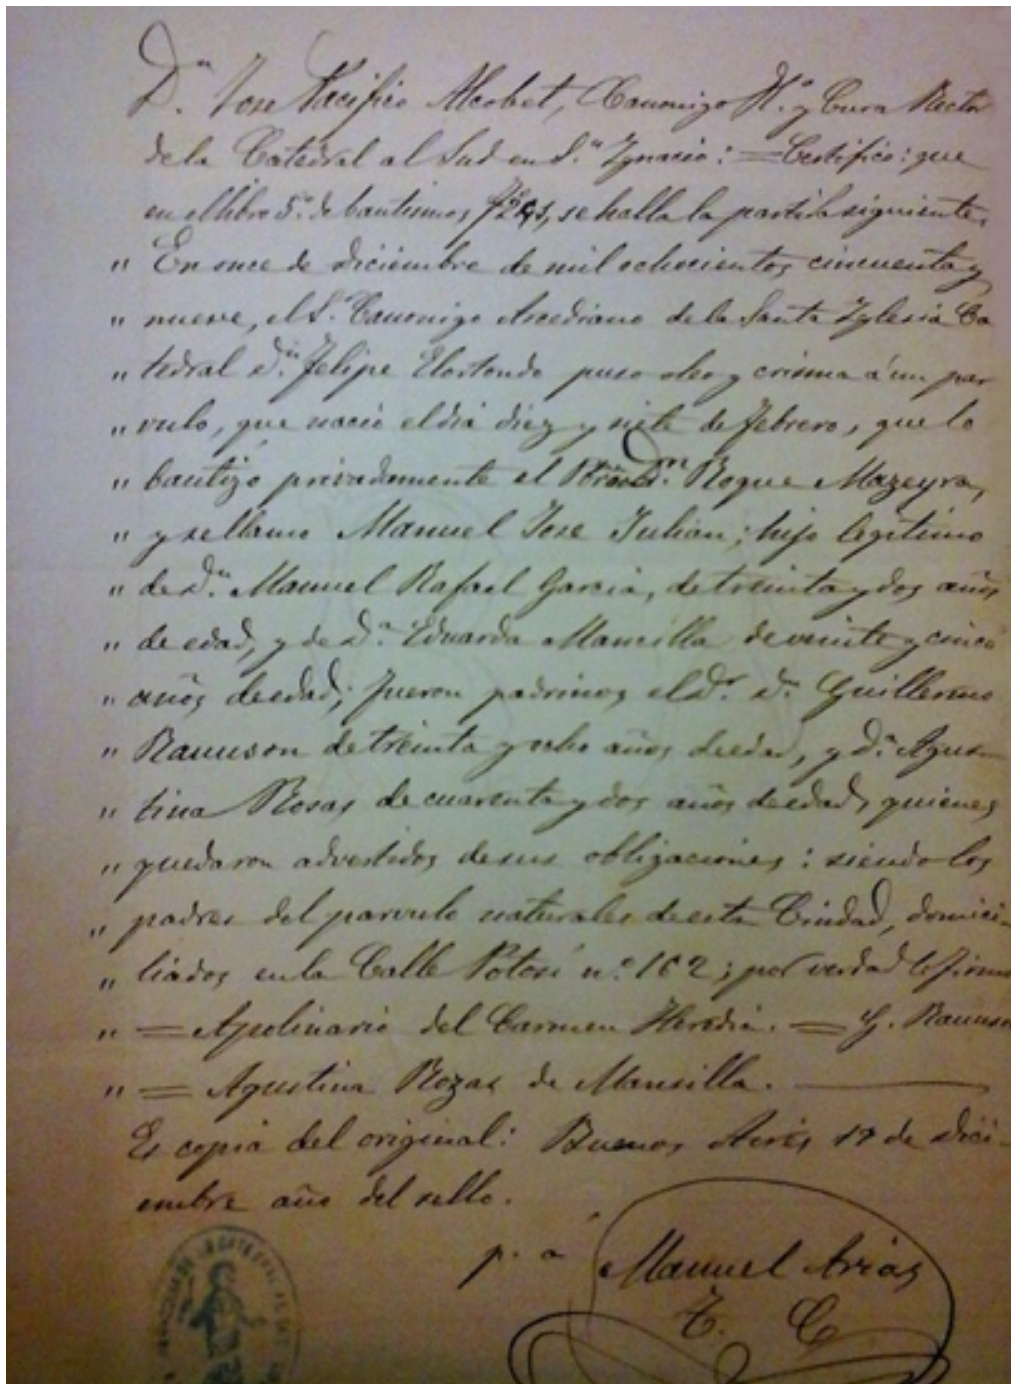 Dn. Jose Pacifico Alcobet, Canonigo H.º y Cura Rector
de la Catedral al Sud en S.n Ygnacio: = Certifico: que
en el libro 5.º de bautismos, se halla la partida siguiente,
" En once de diciembre de mil ochocientos cincuenta y
" nueve, el S.r Canonigo Arcediano de la Santa Yglesia Ca
" tedral d.n Felipe Elortondo puso oleo y crisma á un par
" vulo, que nacio el dia diez y siete de febrero, que lo
" bautizo privadamente el D.n Roque Mazeyra,
" y se llamo Manuel Jose Julian; hijo legitimo
" de d.n Manuel Rafael Garcia, de treinta y dos años
" de edad, y de d.a Eduarda Mancilla de veinte y cinco
" años de edad; fueron padrinos el d.r d.n Guillermo
" Rawson de treinta y ocho años de edad, y d.a Agus-
" tina Rosas de cuarenta y dos años de edad, quienes
" quedaron advertidos de sus obligaciones: siendo los
" padres del parvulo naturales de esta Ciudad, domici-
" liados en la Calle Potosi n.º 162; por verdad lo firmo
" = Apolinario del Carmen Heredia. = G. Rawson
" = Agustina Rozas de Mansilla.
Es copia del original: Buenos Aires 17 de dici-
embre año del sello.
p. a Manuel Arias
T. C